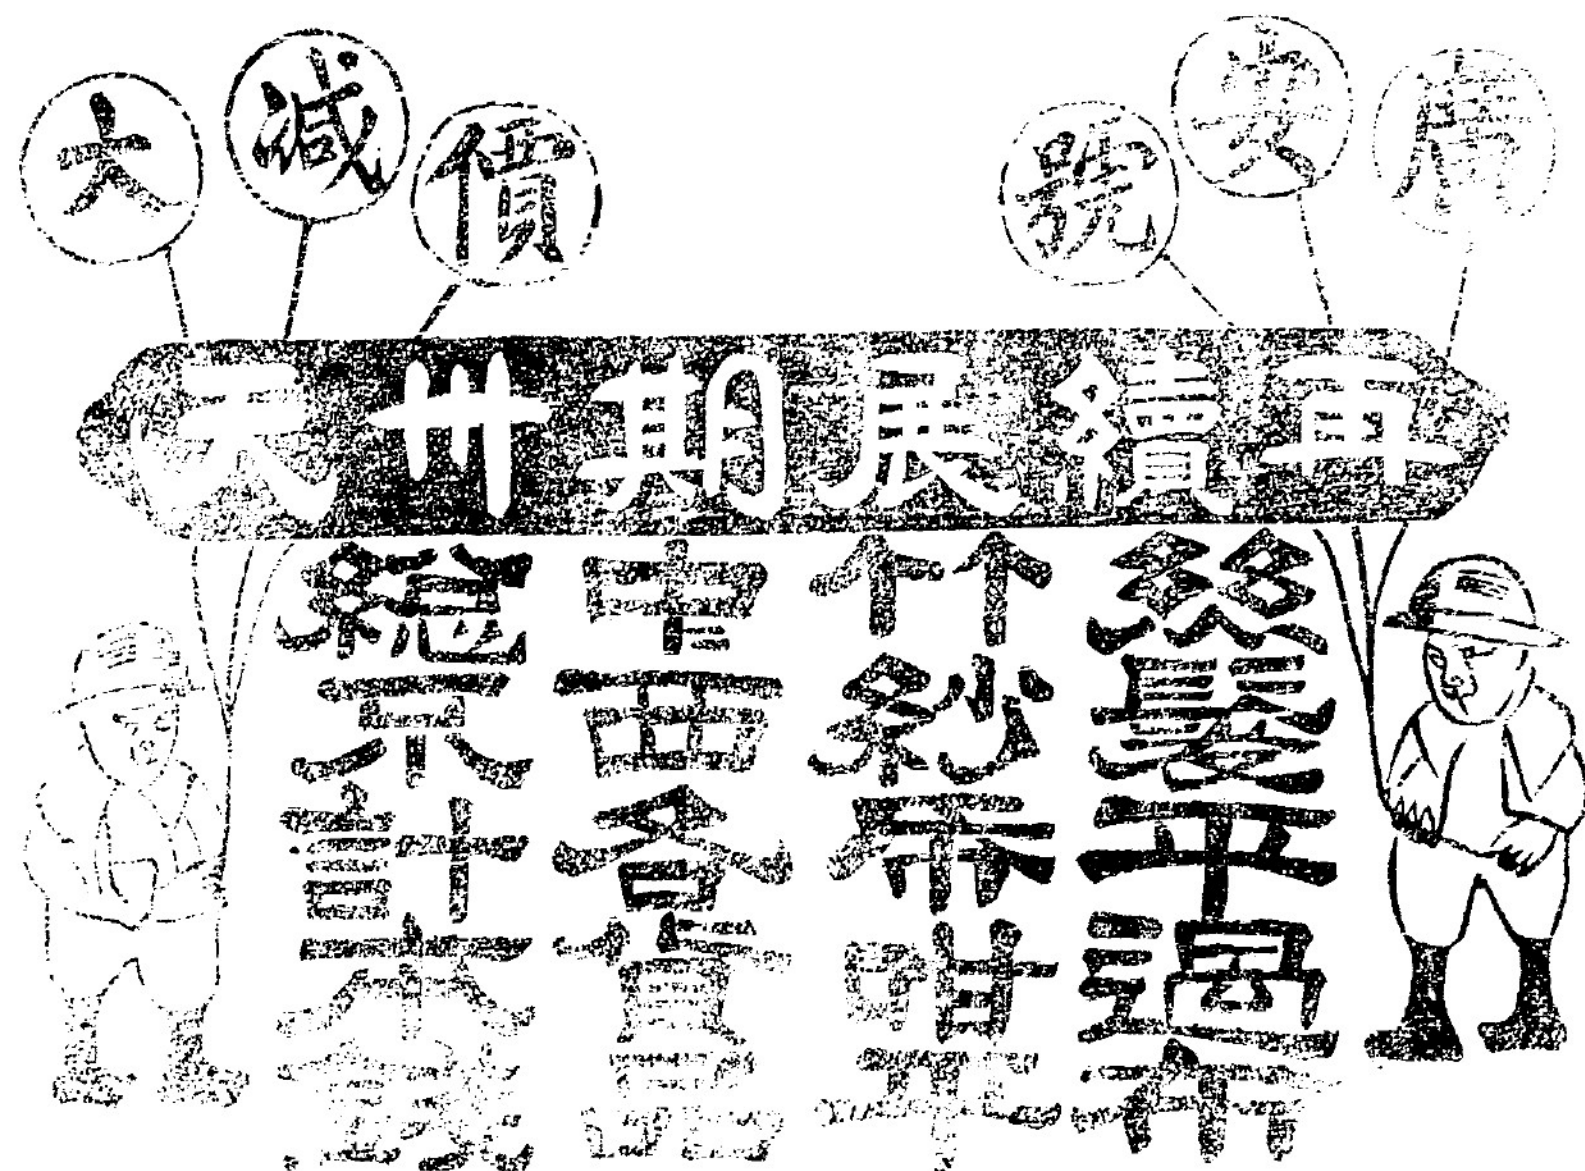 安號
大減價
再續展期卅天
絲髮平過布
竹紗布咁平
中西各貨品
總不計本錢